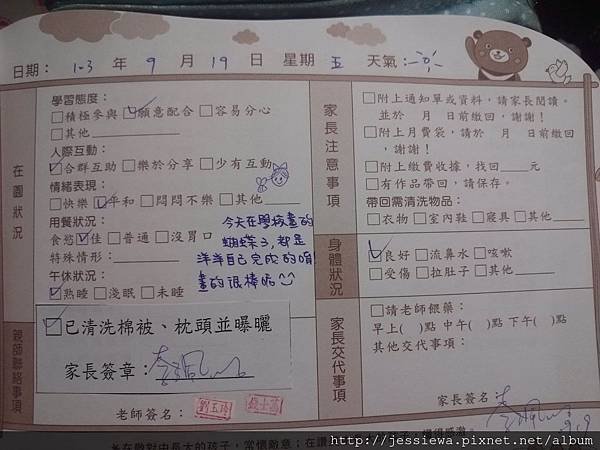 日期： 103 年 9 月 19 日 星期 五 天氣：
在園狀況
學習態度：
□積極參與 ☑願意配合 □容易分心
□其他
人際互動：
☑合群互助 □樂於分享 □少有互動
情緒表現：
□快樂 ☑平和 □悶悶不樂 □其他
用餐狀況：
食慾☑佳 □普通 □沒胃口
特殊情形：
午休狀況：
☑熟睡 □淺眠 □未睡
今天在學校畫的
蝴蝶了,都是
洋洋自己完成的唷
畫的很棒喔
親師聯絡事項
☑已清洗棉被、枕頭並曝曬
家長簽章：
老師簽名：
家長注意事項
□附上通知單或資料，請家長閱讀。
並於 月 日前繳回，謝謝！
□附上月費袋，請於 月 日前繳回
，謝謝！
□附上繳費收據，找回 元
□有作品帶回，請保存。
帶回需清洗物品：
□衣物 □室內鞋 □寢具 □其他
身體狀況
☑良好 □流鼻水 □咳嗽
□受傷 □拉肚子 □其他
家長交代事項
□請老師餵藥：
早上( )點 中午( )點 下午( )點
其他交代事項：
家長簽名：
http://jessiewa.pixnet.net/album